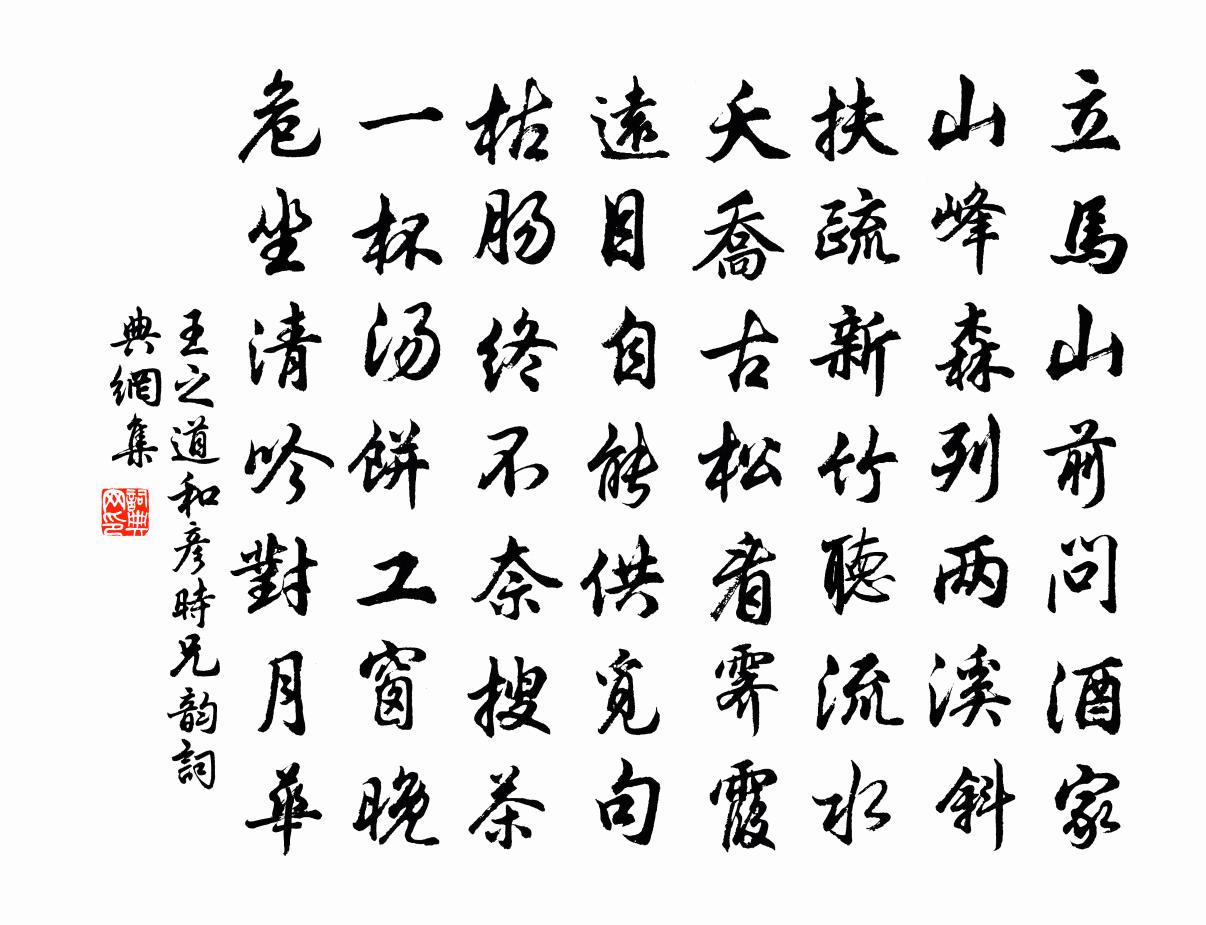 立馬山前問酒家
山峰森列兩溪斜
扶疏新竹聽流水
夭喬古松看霽霞
遠目自能供覓句
枯肠終不奈搜茶
一杯汤餅工窗晚
危坐清吟對月華
王之道和彥時兄韵詞
典網集
詞典网印